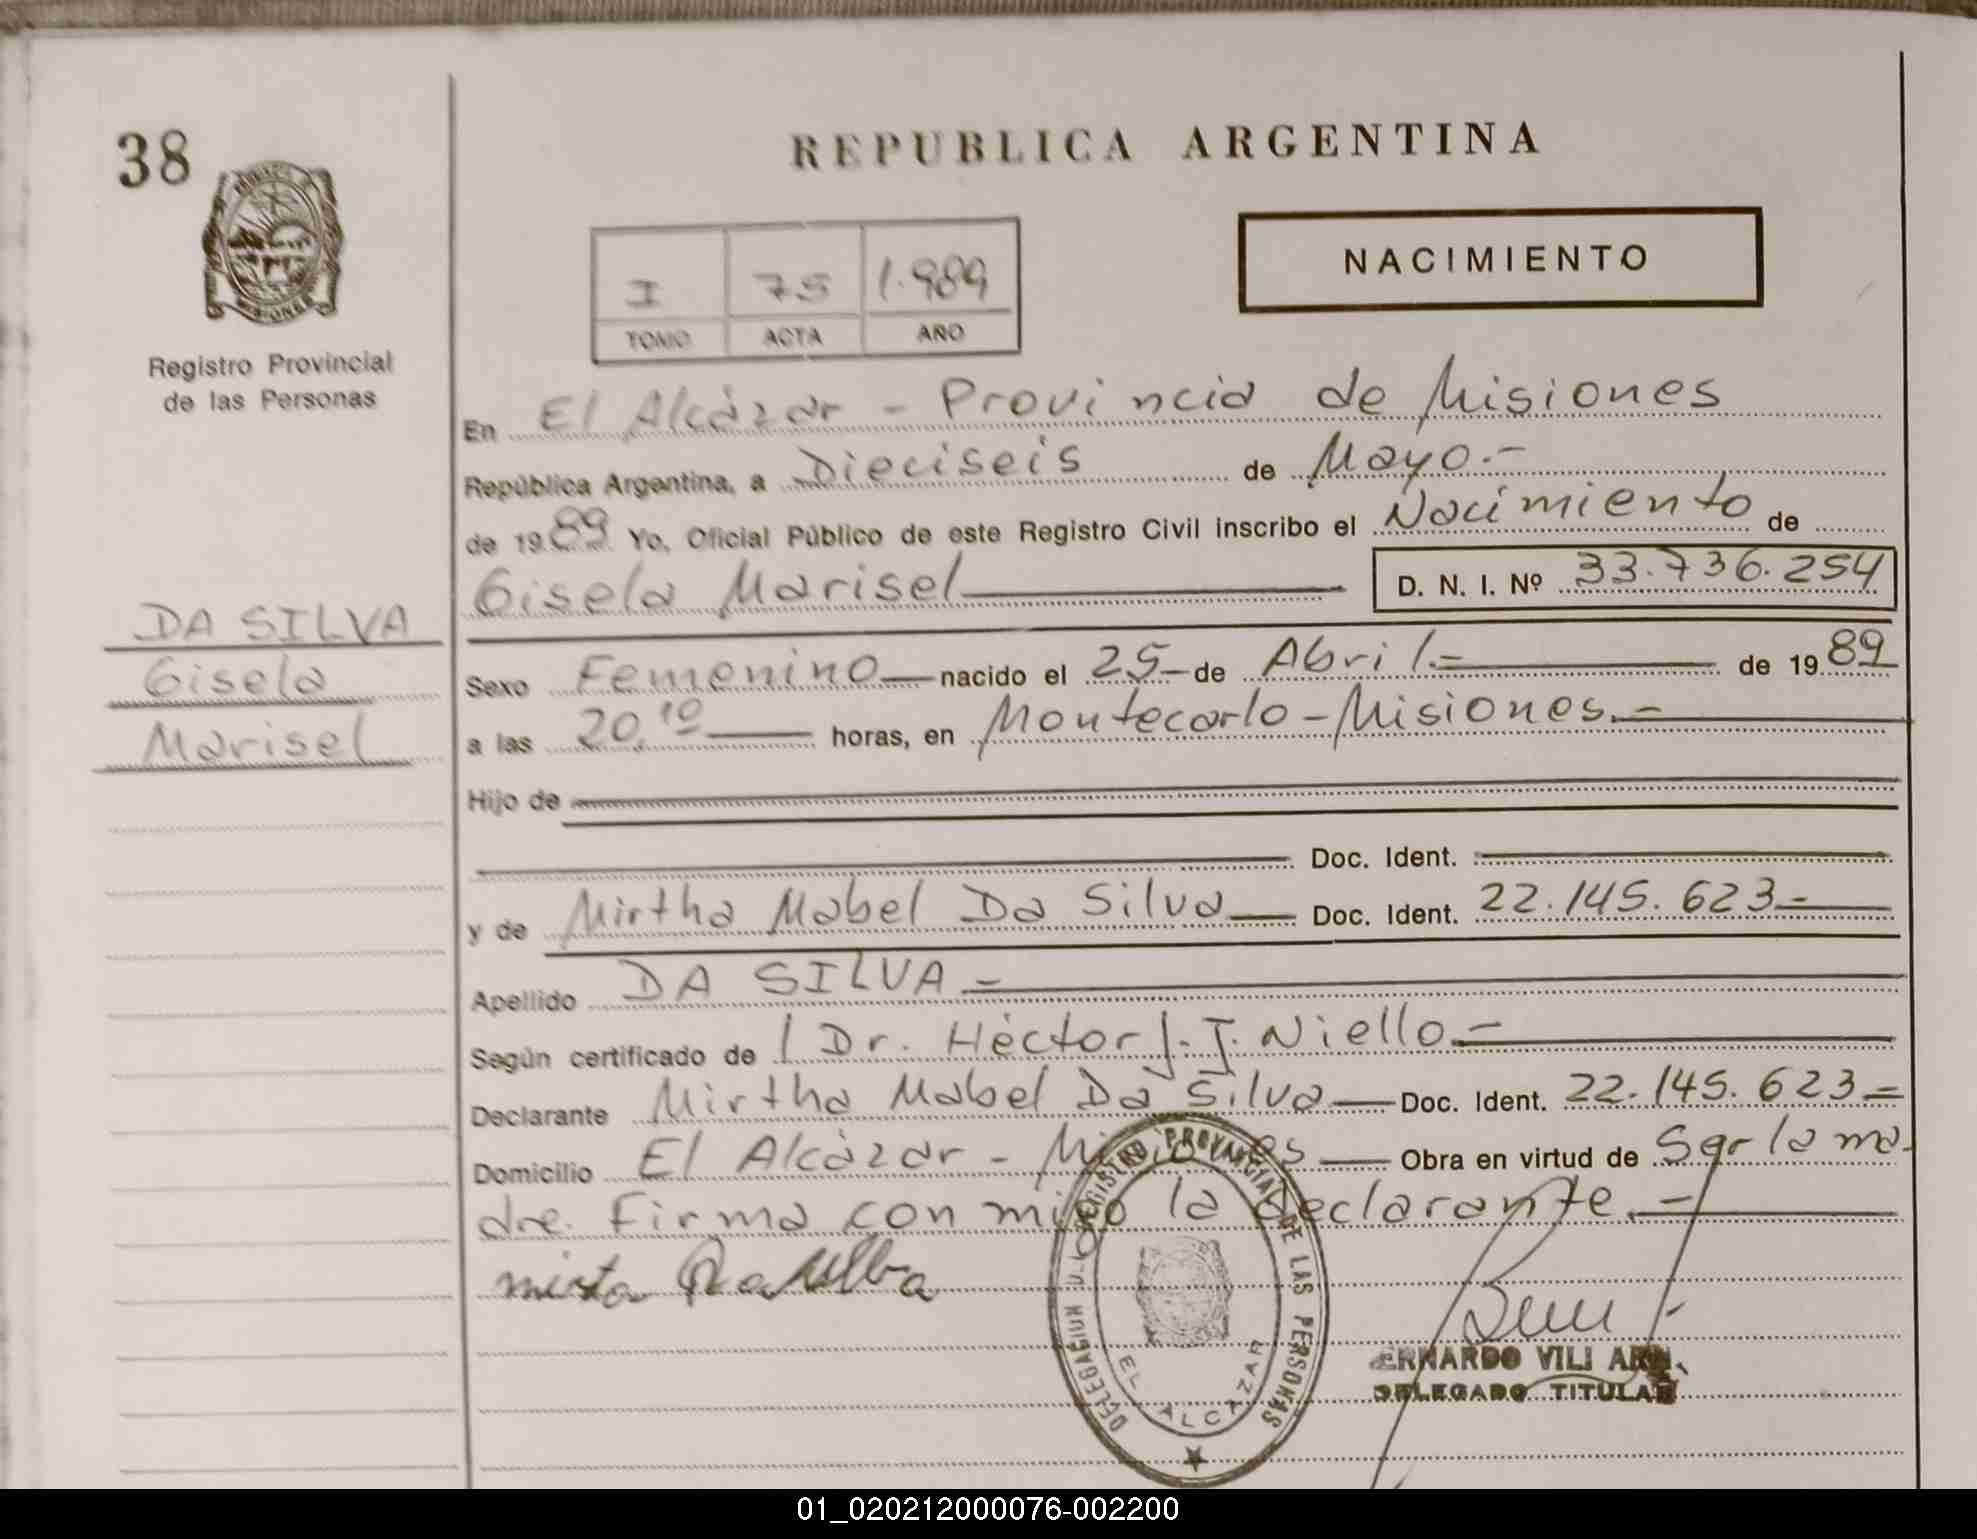 38
REPUBLICA ARGENTINA
NACIMIENTO
I 75 1.989
TOMO ACTA AÑO
Registro Provincial
de las Personas
En El Alcázar - Provincia de Misiones
República Argentina, a Dieciseis de Mayo.-
de 1989 Yo, Oficial Público de este Registro Civil inscribo el Nacimiento de
Gisela Marisel D. N. I. Nº 33.736.254
DA SILVA
Gisela
Marisel
Sexo Femenino nacido el 25 de Abril.= de 1989
a las 20,10 horas, en Montecarlo - Misiones.-
Hijo de
Doc. Ident.
y de Mirtha Mabel Da Silva Doc. Ident. 22.145.623-
Apellido DA SILVA -
Según certificado de Dr. Héctor J. J. Niello -
Declarante Mirtha Mabel Da Silva Doc. Ident. 22.145.623=
Domicilio El Alcázar - Misiones Obra en virtud de Ser la ma-
dre. Firma conmigo la declarante.-
mirta Da Silba
DELEGACION REGISTRO PROVINCIAL DE LAS PERSONAS
EL ALCAZAR
ERNARDO VILLARE
DELEGADO TITULAR
01_020212000076-002200